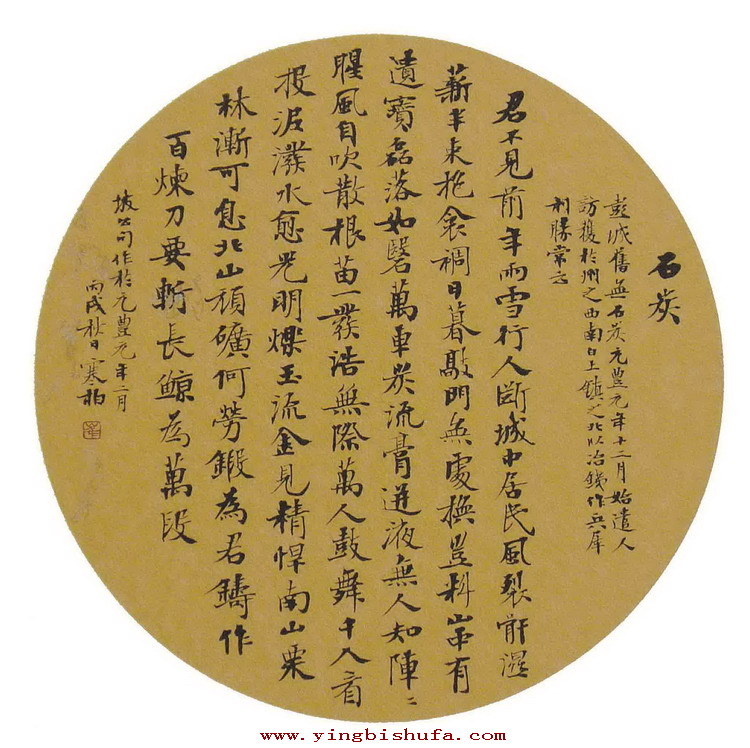 石炭
彭城舊無石炭元豐元年十二月始遣人
訪獲於州之西南白土鎮之北以冶鐵作兵犀
利勝常云
君不見前年雨雪行人斷城中居民風裂骭濕
薪半束抱衾裯日暮敲門無處換豈料山中有
遺寶磊落如磐萬車炭流膏迸液無人知陣二
腥風自吹散根苗一發浩無際萬人鼓舞千人看
投泥潑水愈光明爍玉流金見精悍南山栗
林漸可息北山頑礦何勞鍛為君鑄作
百煉刀要斬長鯨為萬段
坡公司作於元豐元年二月
丙戌秋日寒柏
www.yingbishufa.com